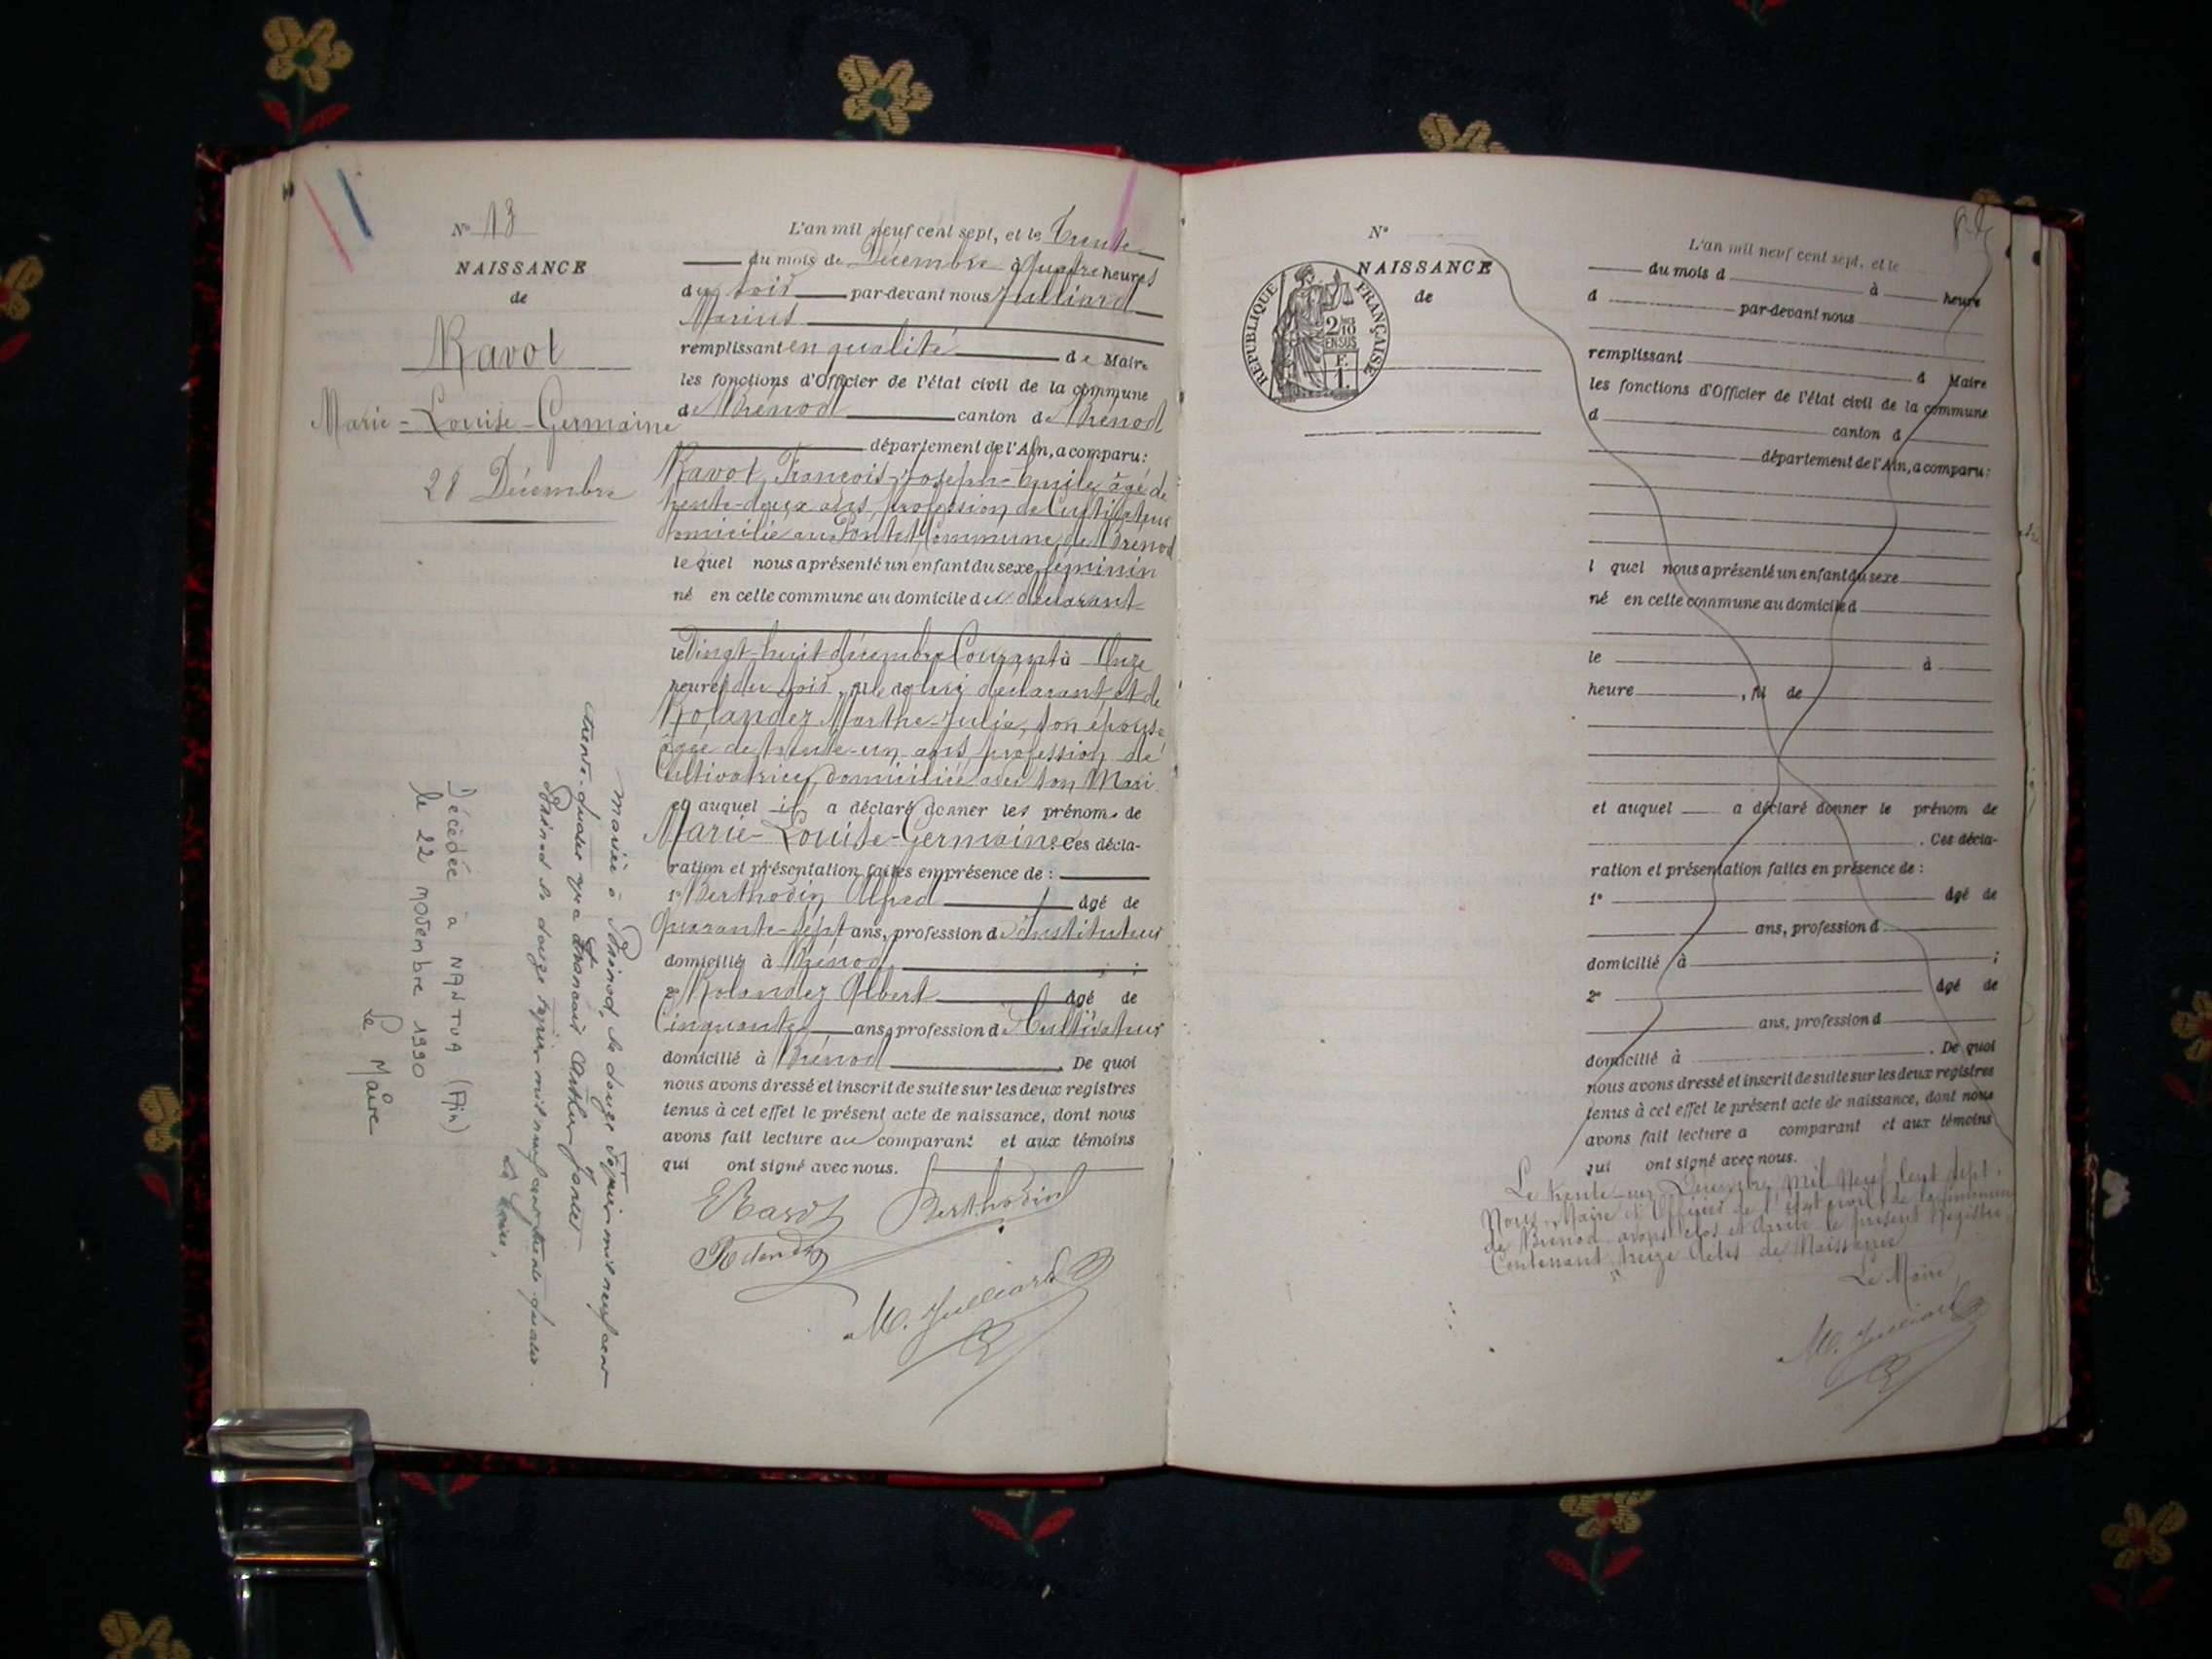 Nº 13
NAISSANCE
de
Ravot
Marie-Louise-Germaine
28 Décembre
L'an mil neuf cent sept, et le Trente
du mois de Décembre à quatre heures
du soir par-devant nous Julliard
Marius
remplissant en qualité de Maire
les fonctions d'Officier de l'état civil de la commune
de Brénod canton de Brénod
département de l'Ain, a comparu:
Ravot François-Joseph-Emile âgé de
trente-deux ans, profession de Cultivateur
domicilié au Pontet Commune de Brénod
lequel nous a présenté un enfant du sexe féminin
né en cette commune au domicile du déclarant
le Vingt-huit décembre Courant à Onze
heures du soir, fille de lui déclarant et de
Rolandez Marthe-Julie, son épouse
âgée de trente-un ans profession de
Cultivatrice, domiciliée avec son Mari
et auquel il a déclaré donner les prénoms de
Marie-Louise-Germaine. Ces décla-
ration et présentation faites en présence de :
1º Berthodin Alfred âgé de
Quarante-sept ans, profession d'Instituteur
domicilié à Brénod ;
2º Rolandez Albert âgé de
Cinquante ans, profession de Cultivateur
domicilié à Brénod. De quoi
nous avons dressé et inscrit de suite sur les deux registres
tenus à cet effet le présent acte de naissance, dont nous
avons fait lecture au comparant et aux témoins
qui ont signé avec nous.
E Ravot Berthodin
Rolandez
M. Julliard
mariée à Brénod, le douze février mil neuf cent
trente-quatre avec François
Brénod le douze février mil neuf cent trente quatre.
Le Maire,
Décédée à NANTUA (Ain)
le 22 novembre 1990
Le Maire
Nº
NAISSANCE
de
RÉPUBLIQUE FRANÇAISE
2/10
EN SUS
F.
1.
L'an mil neuf cent sept, et le
du mois d à heure
d par-devant nous
remplissant d Maire
les fonctions d'Officier de l'état civil de la commune
d canton d
département de l'Ain, a comparu:
l quel nous a présenté un enfant du sexe
né en cette commune au domicile d
le à
heure , fil de
et auquel a déclaré donner le prénom de
. Ces décla-
ration et présentation faites en présence de :
1º âgé de
ans, profession d
domicilié à ;
2º âgé de
ans, profession d
domicilié à . De quoi
nous avons dressé et inscrit de suite sur les deux registres
tenus à cet effet le présent acte de naissance, dont nous
avons fait lecture a comparant et aux témoins
qui ont signé avec nous.
Le trente-un Décembre Mil Neuf Cent Sept.
Nous, Maire et Officier de l'état civil de la commune
de Brénod avons clos et arrêté le présent Registre
Contenant treize Actes de Naissance
Le Maire,
M. Julliard